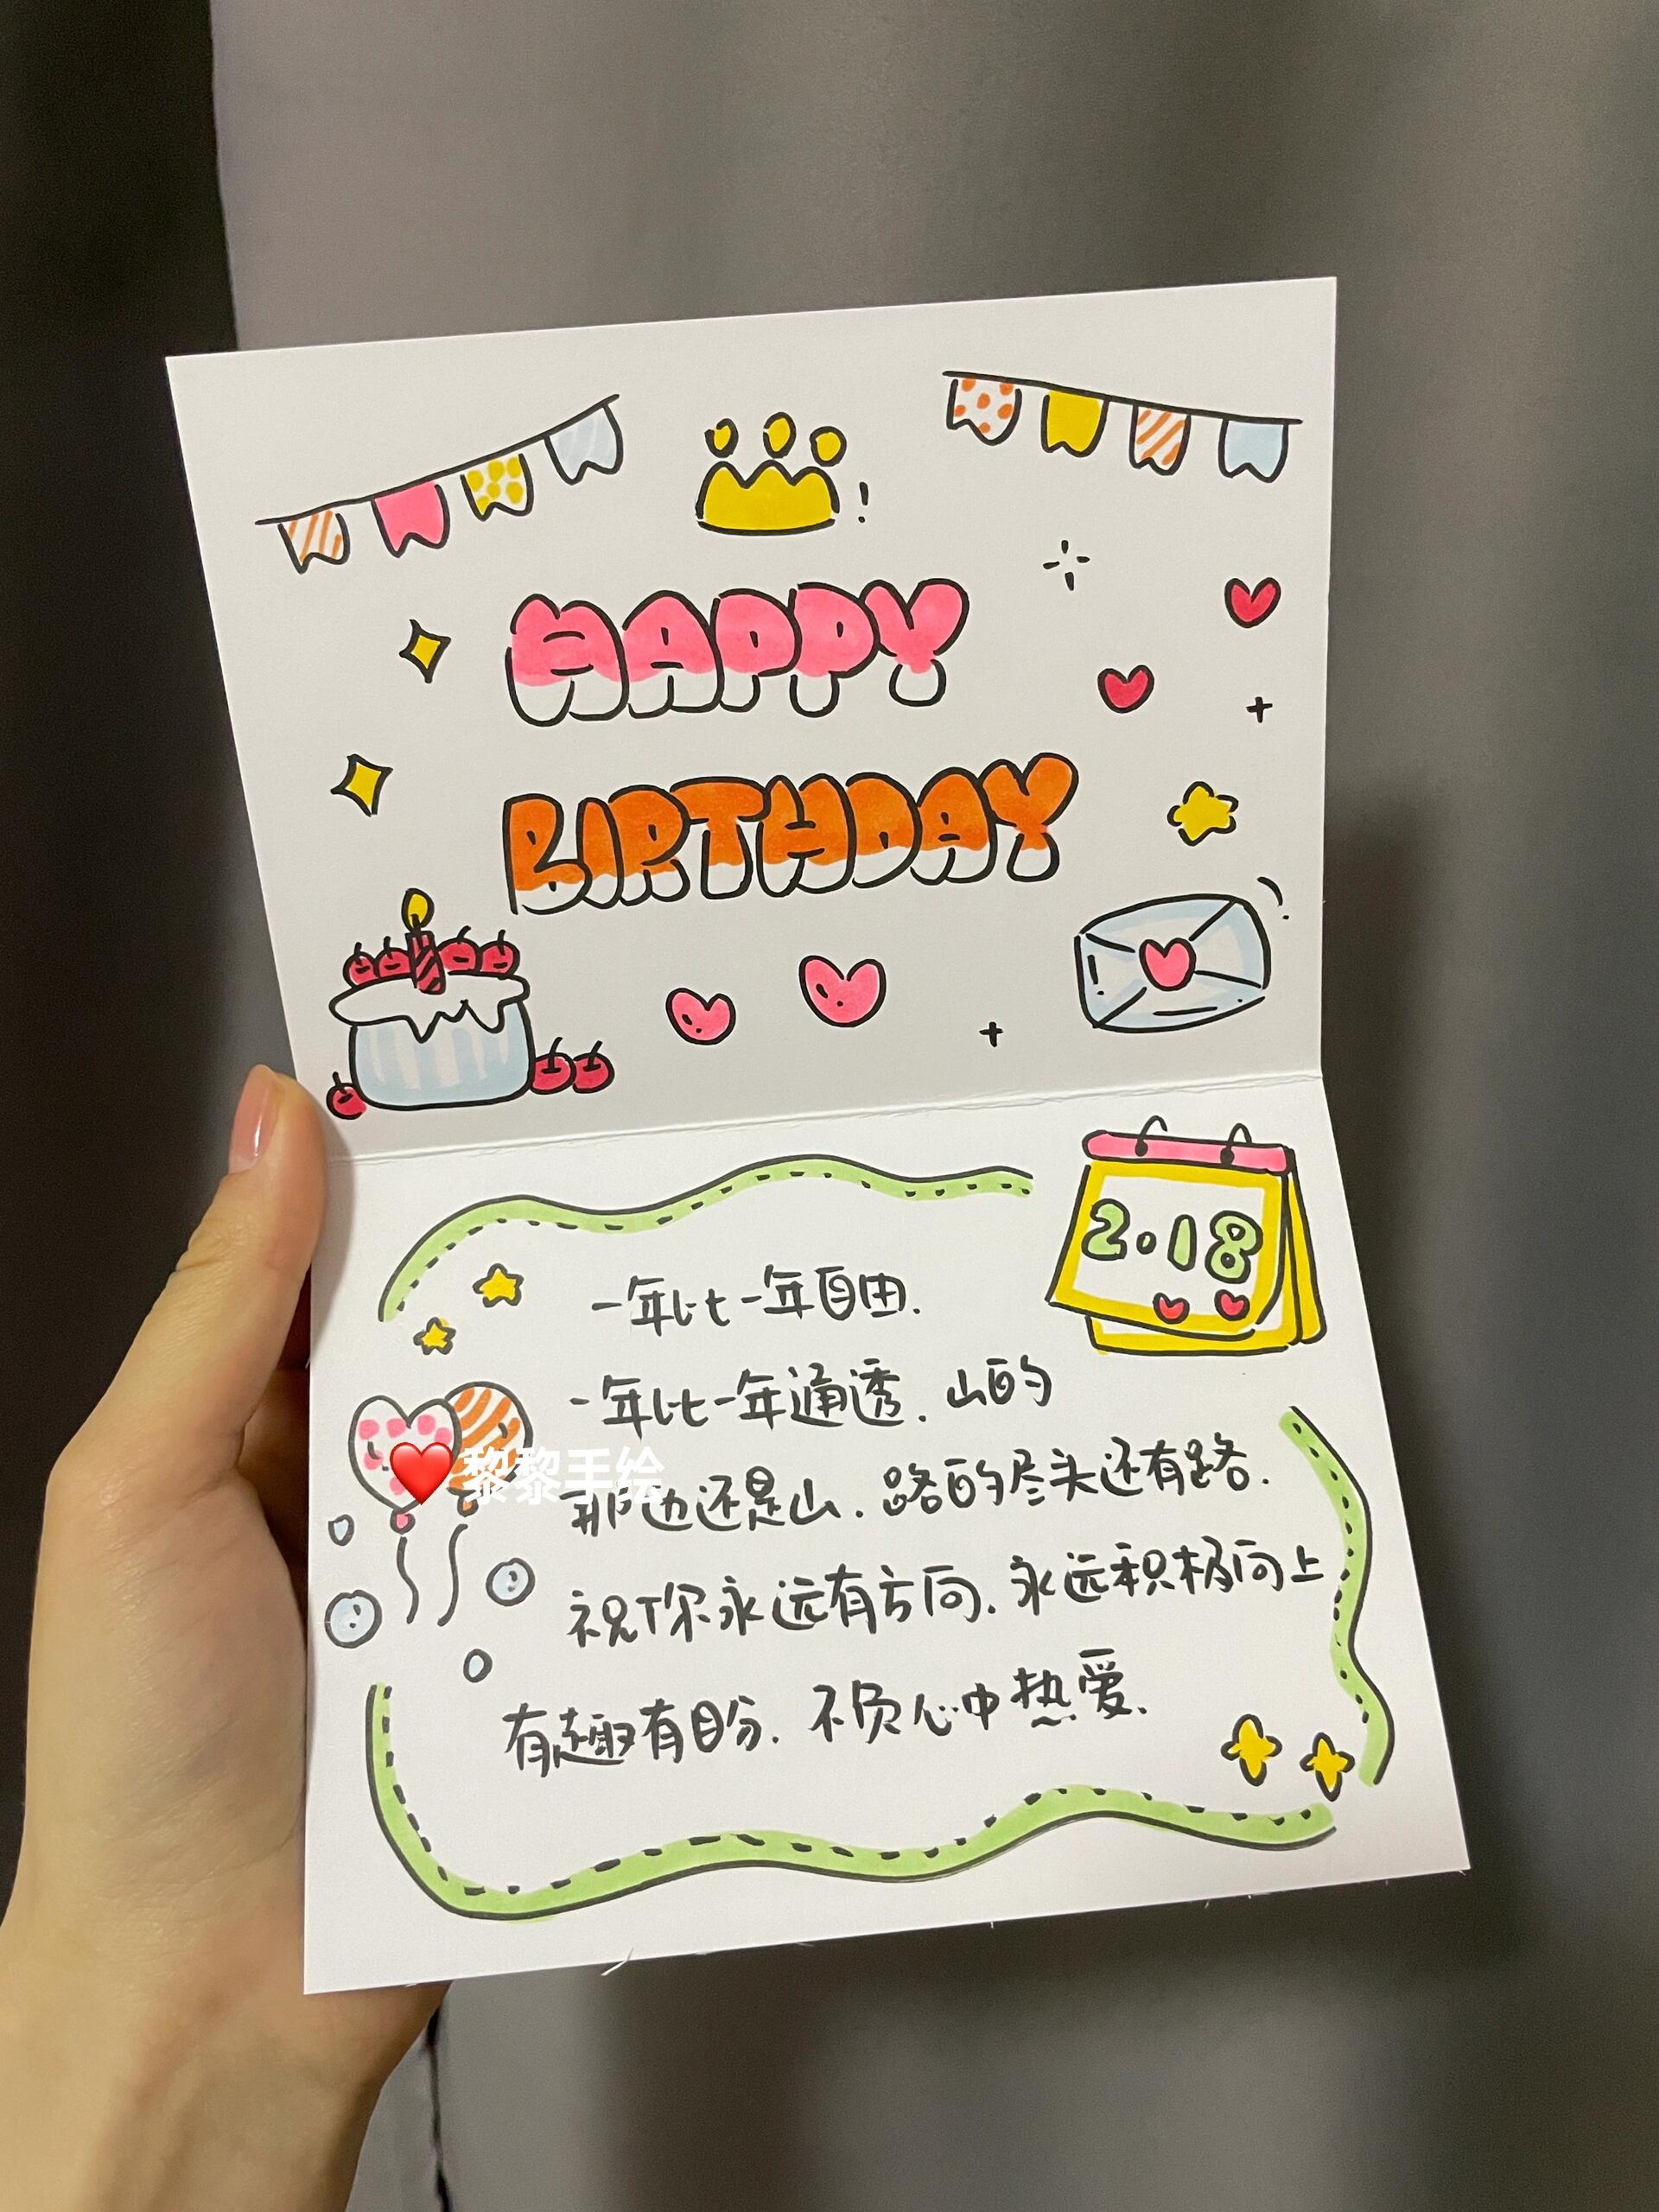 HAPPY
BIRTHDAY
2.18
一年比一年自由.
一年比一年通透.山的
那边还是山.路的尽头还有路.
❤️黎黎手绘
祝你永远有方向.永远积极向上
有趣有自分.不负心中热爱.